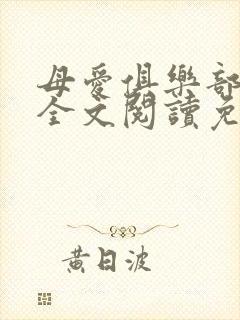 母愛俱樂部
全文閱讀免
黃日波